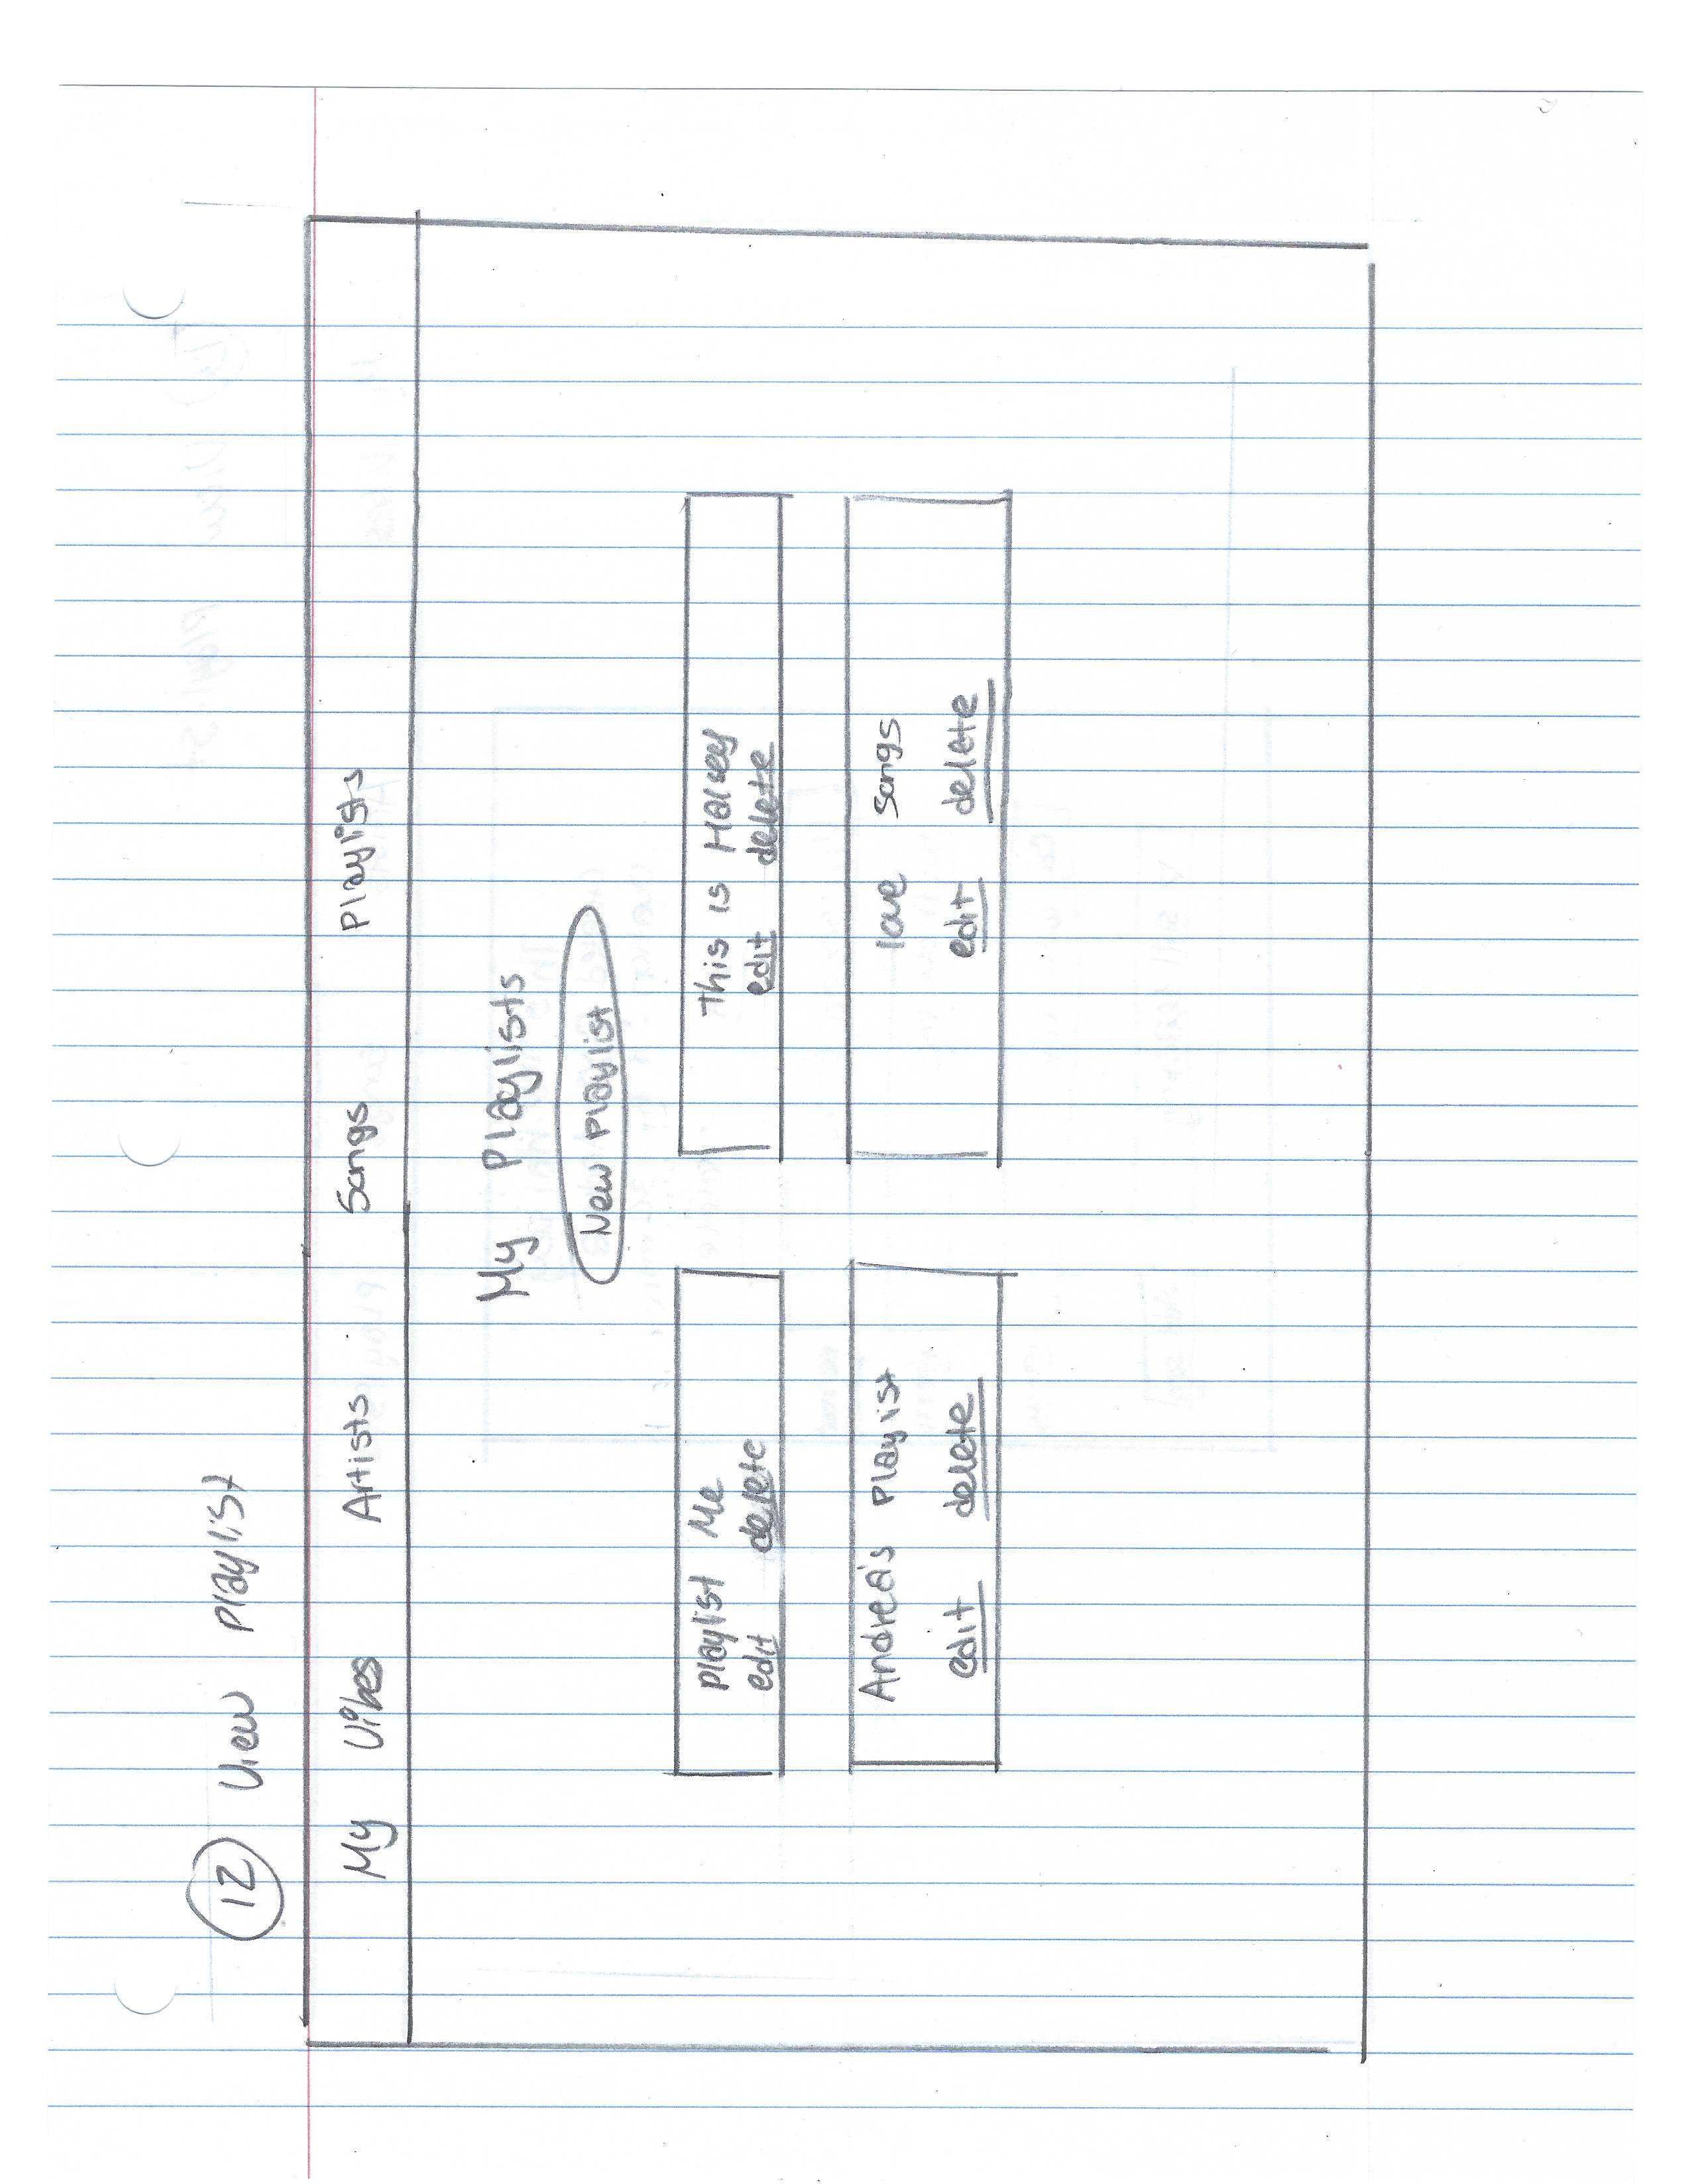 12 View playlist
My Vibes Artists Songs Playlists
My Playlists
New Playlist
playlist Me
edit delete
This is Halsey
edit delete
Andrea's Playlist
edit delete
love songs
edit delete